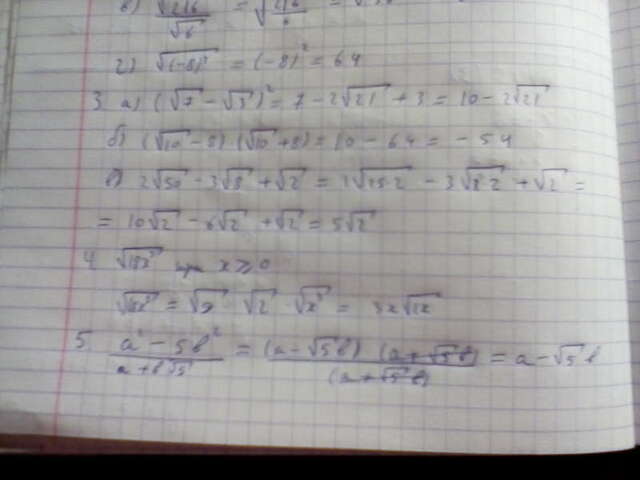 в) √216/√6 = √216/6 =
г) √(-8)⁴ = (-8)² = 64
3. а) (√7 - √3)² = 7 - 2√21 + 3 = 10 - 2√21
б) (√10 - 8) (√10 + 8) = 10 - 64 = -54
в) 2√50 - 3√8 + √2 = 2√25·2 - 3√4·2 + √2 =
= 10√2 - 6√2 + √2 = 5√2
4. √18x³ при x ≥ 0
√18x³ = √9 · √2 · √x³ = 3x√2x
5. a² - 5b² / a + b√5 = (a - √5b) (a + √5b) / (a + √5b) = a - √5b